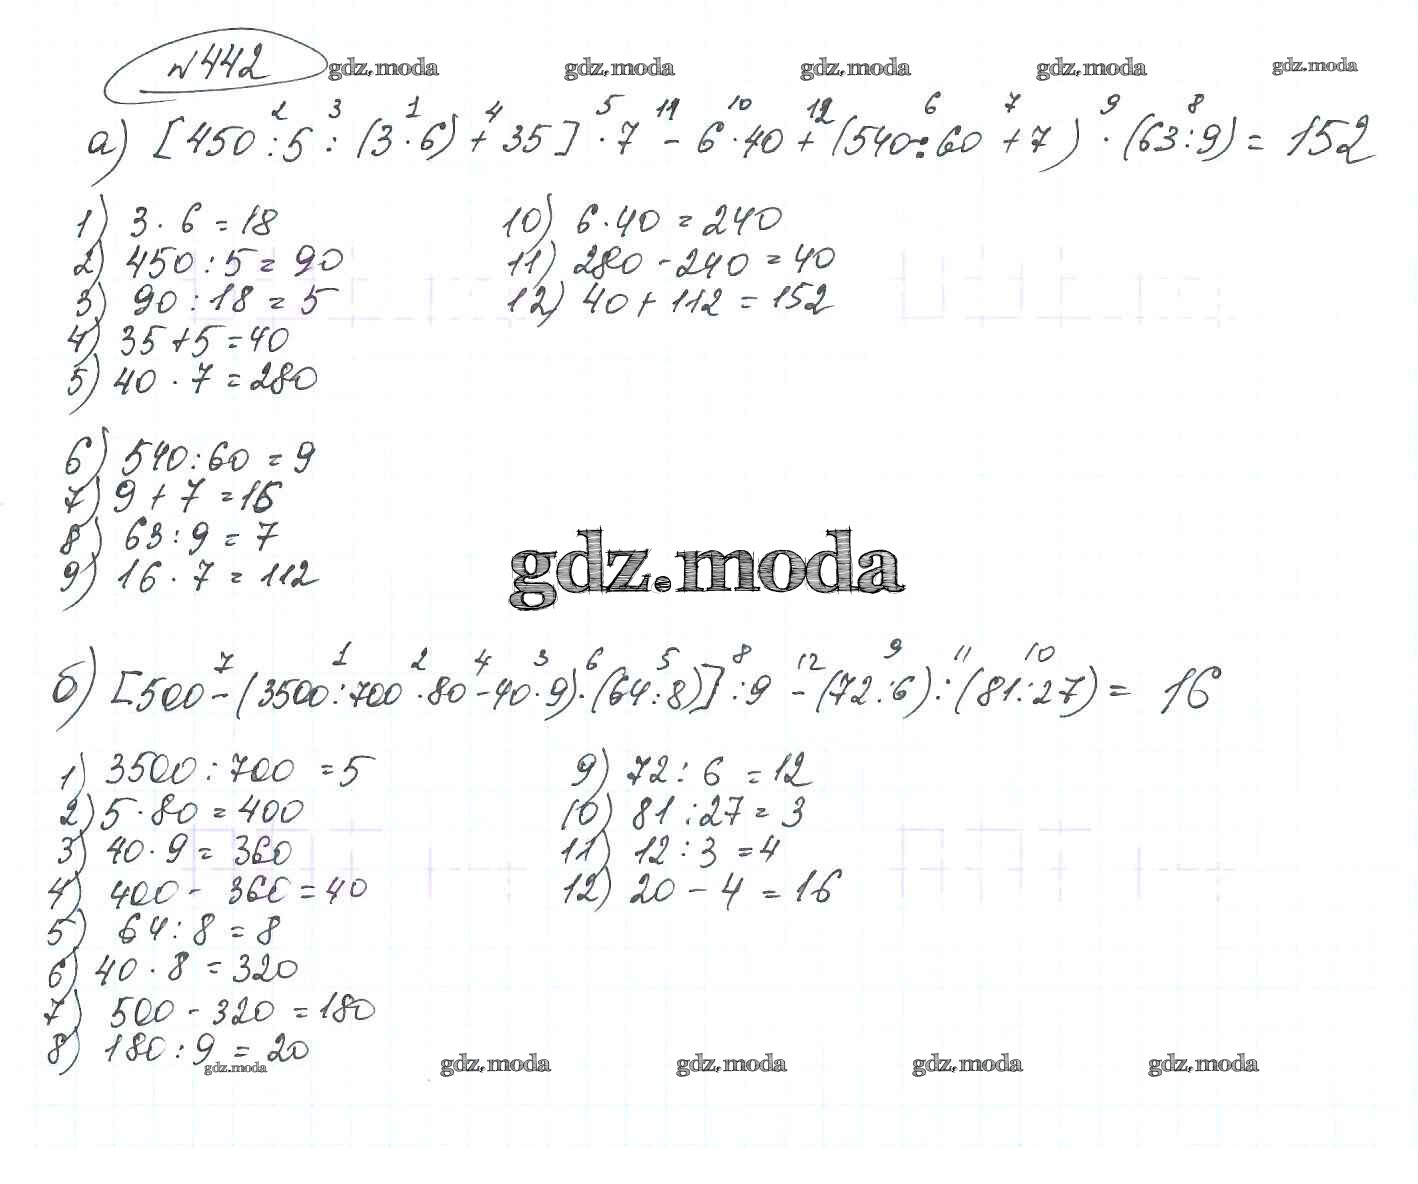 №442
gdz.moda gdz.moda gdz.moda gdz.moda gdz.moda
2 3 1 4 5 11 10 12 6 7 9 8
а) [450 : 5 : (3 · 6) + 35] · 7 - 6 · 40 + (540 : 60 + 7) · (63 : 9) = 152
1) 3 · 6 = 18
2) 450 : 5 = 90
3) 90 : 18 = 5
4) 35 + 5 = 40
5) 40 · 7 = 280
6) 540 : 60 = 9
7) 9 + 7 = 16
8) 63 : 9 = 7
9) 16 · 7 = 112
10) 6 · 40 = 240
11) 280 - 240 = 40
12) 40 + 112 = 152
gdz.moda
7 1 2 4 3 6 5 8 12 9 11 10
б) [500 - (3500 : 700 · 80 - 40 · 9) · (64 : 8)] : 9 - (72 : 6) : (81 : 27) = 16
1) 3500 : 700 = 5
2) 5 · 80 = 400
3) 40 · 9 = 360
4) 400 - 360 = 40
5) 64 : 8 = 8
6) 40 · 8 = 320
7) 500 - 320 = 180
8) 180 : 9 = 20
9) 72 : 6 = 12
10) 81 : 27 = 3
11) 12 : 3 = 4
12) 20 - 4 = 16
gdz.moda gdz.moda gdz.moda gdz.moda gdz.moda